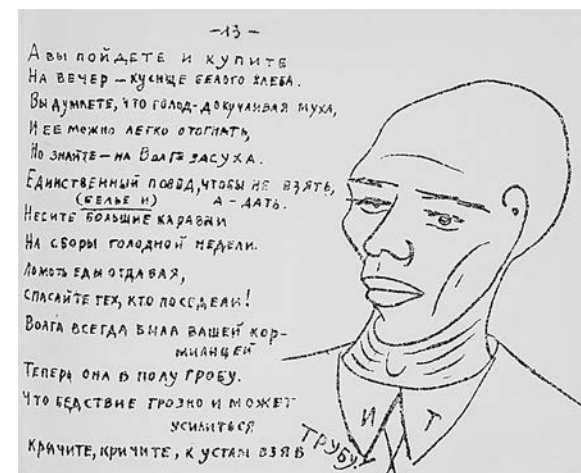 -13-
А ВЫ ПОЙДЕТЕ И КУПИТЕ
НА ВЕЧЕР – КУСИЩЕ БЕЛОГО ХЛЕБА.
ВЫ ДУМАЕТЕ, ЧТО ГОЛОД-ДОКУЧЛИВАЯ МУХА,
И ЕЕ МОЖНО ЛЕГКО ОТОГНАТЬ,
НО ЗНАЙТЕ – НА ВОЛГЕ ЗАСУХА.
ЕДИНСТВЕННЫЙ ПОВОД, ЧТОБЫ НЕ ВЗЯТЬ,
(БЕЛЬЕ И) А - ДАТЬ.
НЕСИТЕ БОЛЬШИЕ КАРАВАИ
НА СБОРЫ ГОЛОДНОЙ НЕДЕЛИ.
ЛОМОТЬ ЕДЫ ОТДАВАЯ,
СПАСАЙТЕ ТЕХ, КТО ПОСЕДЕЛИ!
ВОЛГА ВСЕГДА БЫЛА ВАШЕЙ КОР-
МИЛИЦЕЙ
ТЕПЕРЬ ОНА В ПОЛУ ГРОБУ.
ЧТО БЕДСТВИЕ ГРОЗНО И МОЖЕТ
УСИЛИТЬСЯ
КРИЧИТЕ, КРИЧИТЕ, К УСТАМ ВЗЯВ
ТРУБУ!
И Т